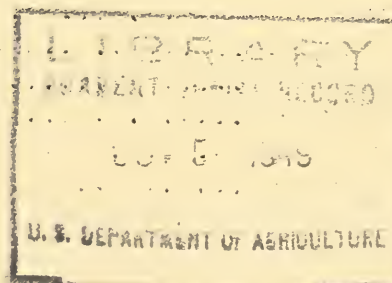 LIBRARY
CURRENT SERIAL RECORD
U. S. DEPARTMENT OF AGRICULTURE